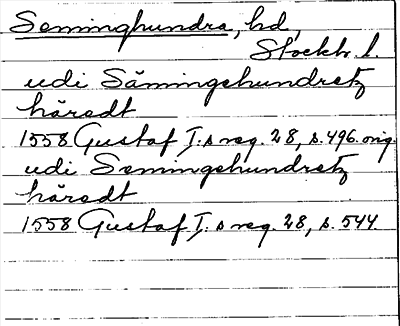 Seminghundra, hd,
Stockh. l.
udi Sämingehundretz
häredt
1558 Gustaf I:s reg. 28, s. 496. orig.
udi Semingehundretz
häredt
1558 Gustaf I:s reg. 28, s. 544